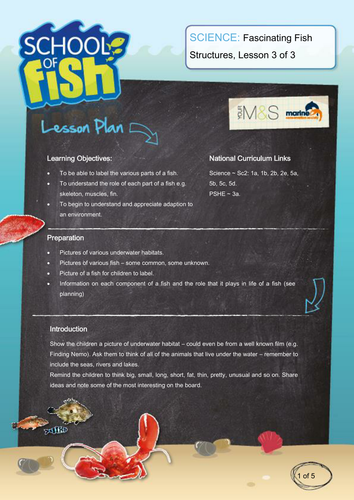 SCHOOL
OF
fish
SCIENCE: Fascinating Fish
Structures, Lesson 3 of 3
YOUR M&S
marine
Lesson Plan
Learning Objectives:
• To be able to label the various parts of a fish.
• To understand the role of each part of a fish e.g.
skeleton, muscles, fin.
• To begin to understand and appreciate adaption to
an environment.
National Curriculum Links
Science ~ Sc2: 1a, 1b, 2b, 2e, 5a,
5b, 5c, 5d.
PSHE ~ 3a.
Preparation
• Pictures of various underwater habitats.
• Pictures of various fish – some common, some unknown.
• Picture of a fish for children to label.
• Information on each component of a fish and the role that it plays in life of a fish (see
planning)
Introduction
Show the children a picture of underwater habitat – could even be from a well known film (e.g.
Finding Nemo). Ask them to think of all of the animals that live under the water – remember to
include the seas, rivers and lakes.
Remind the children to think big, small, long, short, fat, thin, pretty, unusual and so on. Share
ideas and note some of the most interesting on the board.
1 of 5